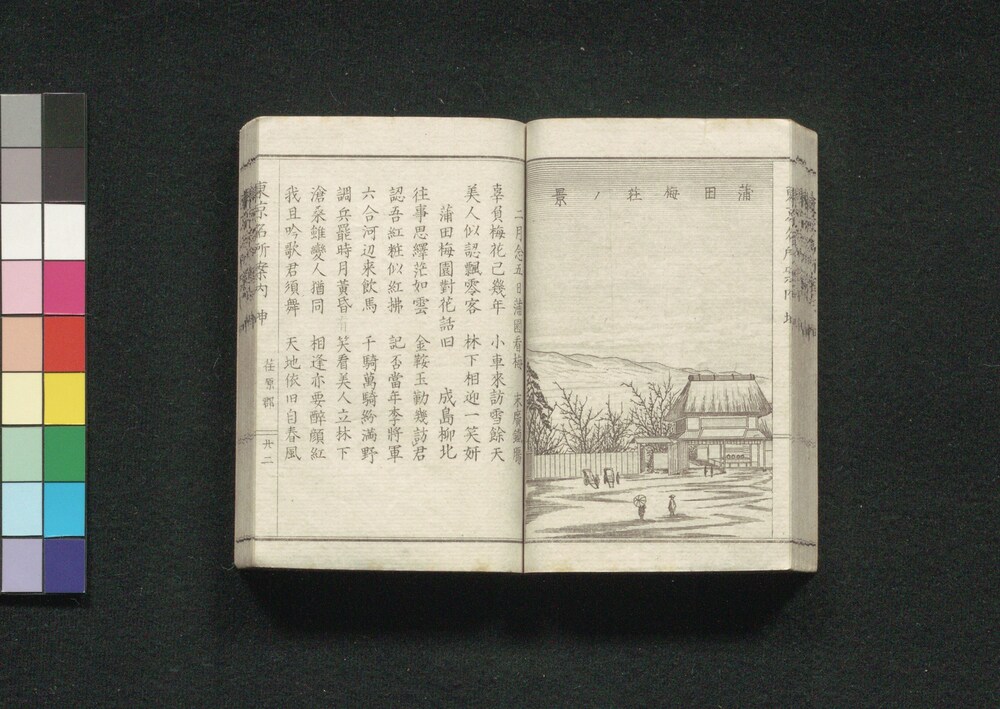 蒲田梅荘ノ景
二月念五日蒲田看梅 末廣鐵腸
辜負梅花已幾年 小車來訪雪餘天
美人似認飄零客 林下相迎一笑妍
蒲田梅園對花話旧 成島柳北
往事思繹茫如雲 金鞍玉勒幾訪君
認吾紅粧似紅拂 記否當年李將軍
六合河辺来飲馬 千騎萬騎紛満野
調兵罷時月黃昏 笑看美人立林下
滄桑雖變人猶同 相逢亦要醉顔紅
我且吟歌君須舞 天地依旧自春風
東京名所案内
荏原郡
廿二